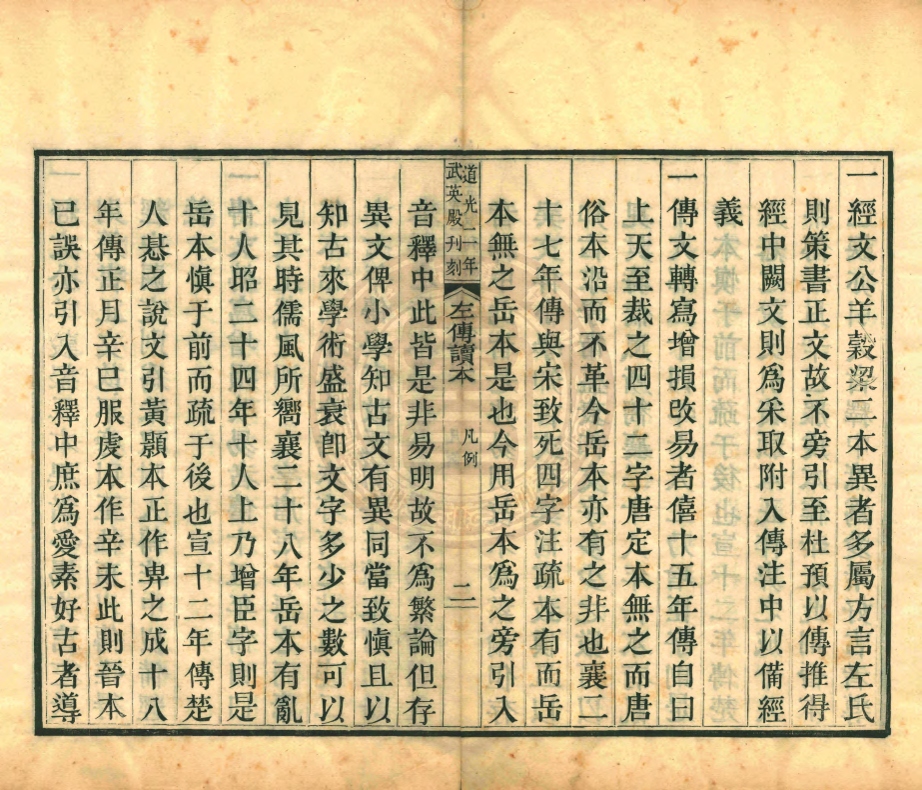 一經文公羊穀梁二本異者多屬方言左氏
則策書正文故不旁引至杜預以傳推得
經中闕文則爲采取附入傳注中以備經
義
一傳文轉寫增損改易者僖十五年傳自曰
上天至裁之四十二字唐定本無之而唐
俗本沿而不革今岳本亦有之非也襄二
十七年傳與宋致死四字注疏本有而岳
本無之岳本是也今用岳本爲之旁引入
道光二年
武英殿刊刻
左傳讀本
凡例
二
音釋中此皆是非易明故不爲繁論但存
異文俾小學知古文有異同當致愼且以
知古來學術盛衰卽文字多少之數可以
見其時儒風所嚮襄二十八年岳本有亂
十人昭二十四年十人上乃增臣字則是
岳本愼于前而疏于後也宣十二年傳楚
人惎之說文引黃顥本正作畁之成十八
年傳正月辛巳服虔本作辛未此則晉本
已誤亦引入音釋中庶爲愛素好古者導